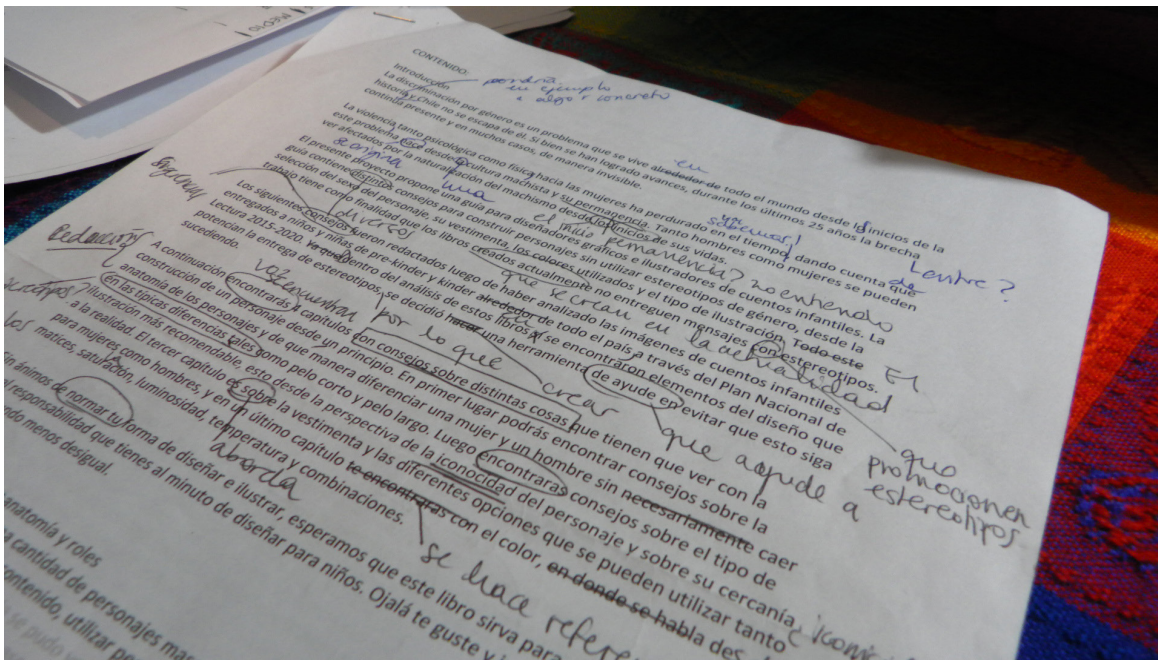 CONTENIDO:
Introducción
pondría
un ejemplo
o algo + concreto
La discriminación por género es un problema que se vive alrededor de todo el mundo desde los inicios de la
en
historia y Chile no se escapa de él. Si bien se han logrado avances, durante los últimos 25 años la brecha
continúa presente y en muchos casos, de manera invisible.
La violencia tanto psicológica como física hacia las mujeres ha perdurado en el tiempo, dando cuenta que
de
este problema nace desde la cultura machista y su permanencia. Tanto hombres como mujeres se pueden
ver afectados por la naturalización del machismo desde los inicios de sus vidas.
el inicio permanencia? no entiendo
El presente proyecto propone una guía para diseñadores gráficos e ilustradores de cuentos infantiles. La
una
guía contiene distintos consejos para construir personajes sin utilizar estereotipos de género, desde la
diversos
selección del sexo del personaje, su vestimenta, los colores utilizados y el tipo de ilustración. Todo este
El
trabajo tiene como finalidad que los libros creados actualmente no entreguen mensajes con estereotipos.
que se crean en la actualidad
que
promocionen
estereotipos
Los siguientes consejos fueron redactados luego de haber analizado las imágenes de cuentos infantiles
entregados a niños y niñas de pre-kinder y kinder alrededor de todo el país a través del Plan Nacional de
Lectura 2015-2020. Ya que dentro del análisis de estos libros se encontraron elementos del diseño que
potencian la entrega de estereotipos, se decidió hacer una herramienta de ayude en evitar que esto siga
por lo que
crear
que ayude a
sucediendo.
Redacción
A continuación encontrarás 4 capítulos con consejos sobre distintas cosas que tienen que ver con la
construcción de un personaje desde un principio. En primer lugar podrás encontrar consejos sobre la
anatomía de los personajes y de que manera diferenciar una mujer y un hombre sin necesariamente caer
en las típicas diferencias tales como pelo corto y pelo largo. Luego encontraras consejos sobre el tipo de
ilustración más recomendable, esto desde la perspectiva de la iconocidad del personaje y sobre su cercanía
a la realidad. El tercer capítulo es sobre la vestimenta y las diferentes opciones que se pueden utilizar tanto
aborda
para mujeres como hombres, y en un último capítulo te encontraras con el color, en donde se habla
se hace
matices, saturación, luminosidad, temperatura y combinaciones.
ánimos de normar tu forma de diseñar e ilustrar, esperamos que este libro sirva para
responsabilidad que tienes al minuto de diseñar para niños. Ojalá te guste y
menos desigual.
anatomía y roles
cantidad de personajes
utilizar